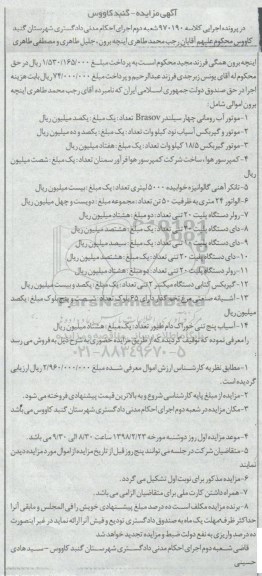 آگهی مزایده - گنبد کاووس
در پرونده اجرایی کلاسه ۹۷۰۱۹۰ شعبه دوم اجرای احکام مدنی دادگستری شهرستان گنبد
کاووس محکوم علیهم آقایان رجب محمد طاهری اینچه برون، جلیل طاهری و مصطفی طاهری
اینچه برون همگی فرزند مجید محکوم است به پرداخت مبلغ ۱/۵۳۰/۱۶۵/۰۰۰ ریال در حق
محکوم له آقای یونس زبرجدی فرزند عبدالرحیم و پرداخت مبلغ ۷۴/۰۰۰/۰۰۰ ریال بابت هزینه
اجرا در حق صندوق دولت جمهوری اسلامی ایران که نامبرده آقای رجب محمد طاهری اینچه
برون اموالی شامل:
۱- موتور آب رومانی چهار سیلندر Brasov تعداد: یک، مبلغ: یکصد میلیون ریال
۲- موتور و گیربکس آسیاب نود کیلو وات تعداد: یک، مبلغ: یکصد و ده میلیون ریال
۳- موتور و گیربکس 18/5 کیلو وات تعداد: یک، مبلغ: هفتاد میلیون ریال
۴- کمپرسور هوا، ساخت شرکت کمپرسور هوا فرآور سمنان تعداد: یک، مبلغ: شصت میلیون
ریال
۵- تانکر آهنی گالوانیزه خوابیده ۵۰۰۰ لیتری تعداد: یک، مبلغ: بیست میلیون ریال
۶- الواتور ۲۴ متری به ظرفیت ۵۰ تن تعداد: مجموعه مبلغ: دویست و چهل میلیون ریال
۷- رولر دستگاه پلیت ۲۰ تنی تعداد: دو مبلغ: هشتاد میلیون ریال
۸- دای دستگاه پلیت
۹- دای دستگاه پلیت
۱۰- دای دستگاه پلیت ۲۰ تنی تعداد: یک، مبلغ: هشتصد میلیون ریال
۱۱- رولر دستگاه پلیت ۲۰ تنی تعداد: یک، مبلغ: هشتاد میلیون ریال
۱۲- گیربکس کتابی دستگاه میکسر ۲ تنی تعداد: یک، مبلغ: یکصد و بیست میلیون ریال
میلیون ریال
۱۴- آسیاب پنج تنی خوراک دام طیور تعداد: یک، مبلغ: هشتاد میلیون ریال
۰۲۱-۸۸۳۴۹۶۷۰-۵
۱- مطابق نظریه کارشناس ارزش اموال معرفی شده مبلغ ۲/۹۶۰/۰۰۰/۰۰۰ ریال ارزیابی
گردیده است.
۲- مزایده از مبلغ پایه کارشناسی شروع و به بالاترین قیمت پیشنهادی فروخته می شود.
۳- مکان مزایده در شعبه دوم اجرای احکام مدنی دادگستری شهرستان گنبد کاووس می باشد
۴- موعد مزایده اول روز دوشنبه مورخه ۱۳۹۸/۲/۲۳ ساعت ۸/۳۰ الی ۹/۳۰ می باشد.
۵- متقاضیان شرکت در جلسه می توانند پنج روز قبل از تاریخ مزایده از اموال مورد مزایده دیدن
نمایند
۶- مزایده مذکور برای نوبت اول تشکیل می گردد.
۷- همراه داشتن کارت ملی برای متقاضیان الزامی می باشد.
۸- برنده مزایده مکلف است ده درصد مبلغ پیشنهادی خویش را فی المجلس و مابقی آنرا
حداکثر ظرف مهلت یک ماه به صندوق دادگستری تودیع و فیش آنرا ارائه نماید در غیر اینصورت
ده درصد واریزی به نفع دولت ضبط و مزایده تجدید خواهد شد
قاضی شعبه دوم اجرای احکام مدنی دادگستری شهرستان گنبد کاووس - سید هادی
حسینی